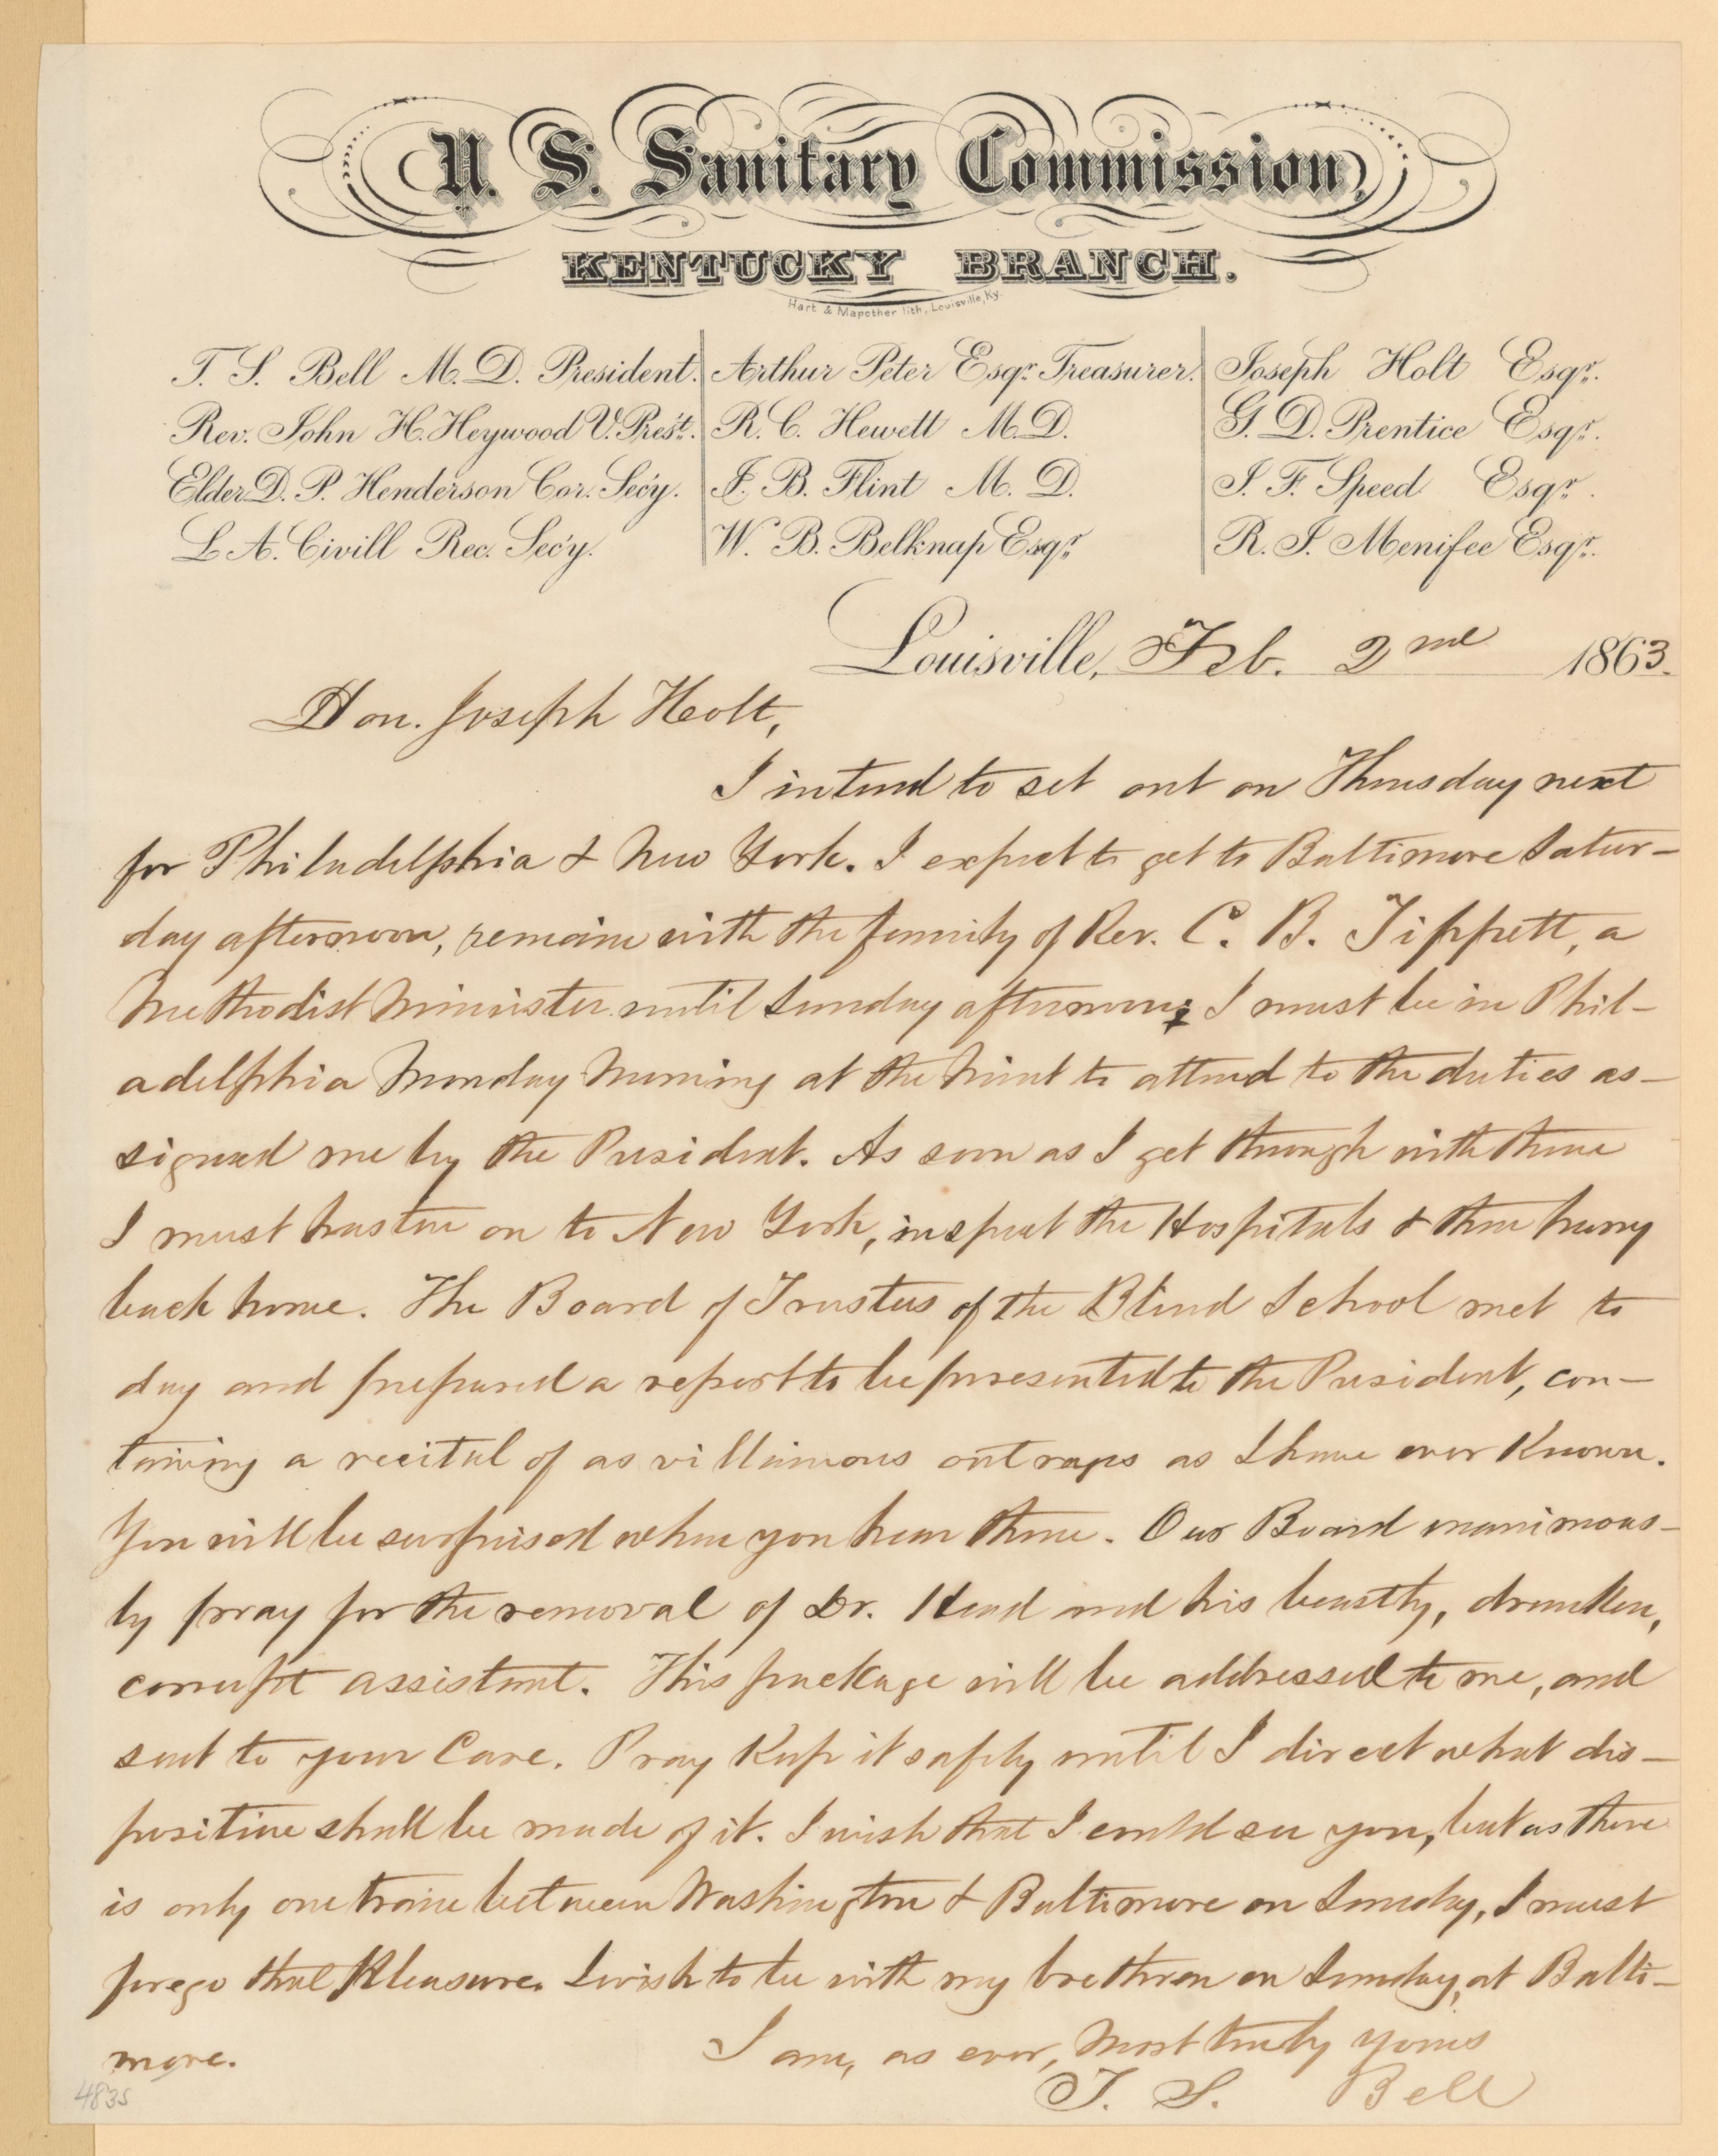 U. S. Sanitary Commission,
KENTUCKY BRANCH.
Hart & Mapother lith, Louisville, Ky.
T. S. Bell M. D. President.
Rev. John H. Heywood V. Prest.
Elder D. P. Henderson Cor. Sec'y.
L. A. Civill Rec. Sec'y.
Arthur Peter Esqr. Treasurer.
R. C. Hewett M. D.
J. B. Flint M. D.
W. B. Belknap Esqr.
Joseph Holt Esqr.
G. D. Prentice Esqr.
J. F. Speed Esqr.
R. J. Menifee Esqr.
Louisville, Feb. 2nd 1863.
Hon. Joseph Holt,
I intend to set out on Thursday next
for Philadelphia & New York. I expect to get to Baltimore Satur-
day afternoon, remain with the family of Rev. C. B. Tippett, a
Methodist Minister until Sunday afternoon; I must be in Phil-
adelphia Monday Morning at the Mint to attend to the duties as-
signed me by the President. As soon as I get through with these
I must hasten on to New York, inspect the Hospitals & then hurry
back home. The Board of Trustees of the Blind School met to
day and prepared a report to be presented to the President, con-
taining a recital of as villainous outrages as I have ever Known.
You will be surprised when you hear them. Our Board unanimous-
ly pray for the removal of Dr. Head and his beastly, drunken,
corrupt assistant. This package will be addressed to me, and
sent to your Care. Pray Keep it safely until I direct what dis-
position shall be made of it. I wish that I could see you, but as there
is only one train between Washington & Baltimore on Sunday, I must
forego that Pleasure. I wish to be with my brethren on Sunday, at Balti-
more.
I am, as ever, Most truly yours
T. S. Bell
4835